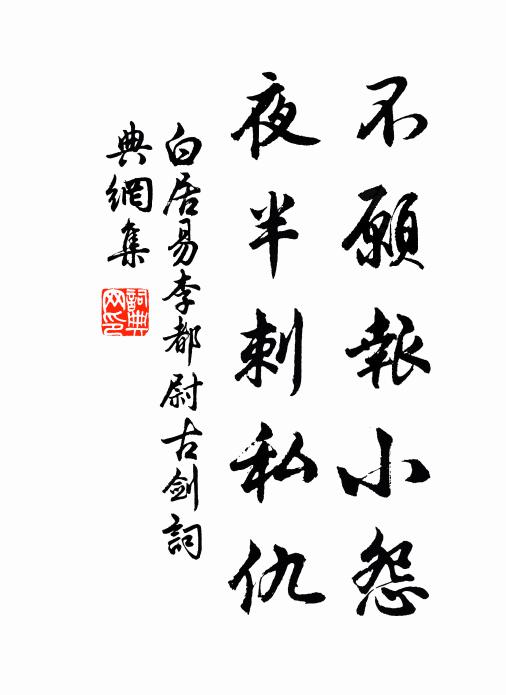 不願報小怨
夜半刺私仇
白居易李都尉古劍詞
典網集
詞典
网印